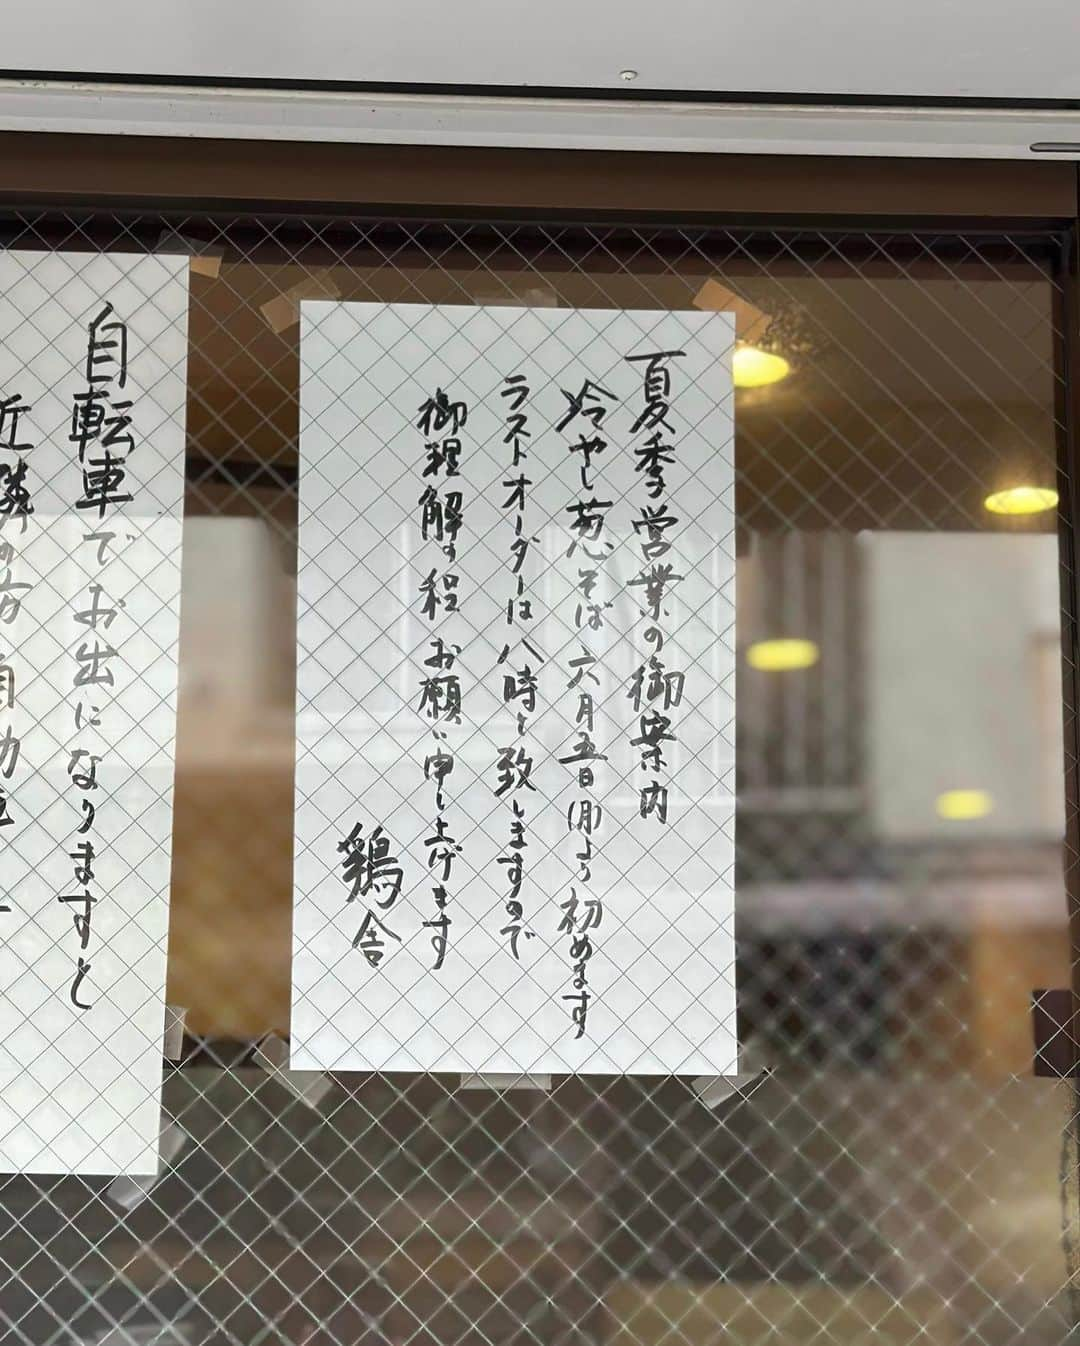 夏季営業の御案内
冷やし葱そば 六月五日(月)より初めます
ラストオーダーは八時と致しますので
御理解の程お願い申し上げます
鶏舎
自転車でお出になりますと
近隣の方